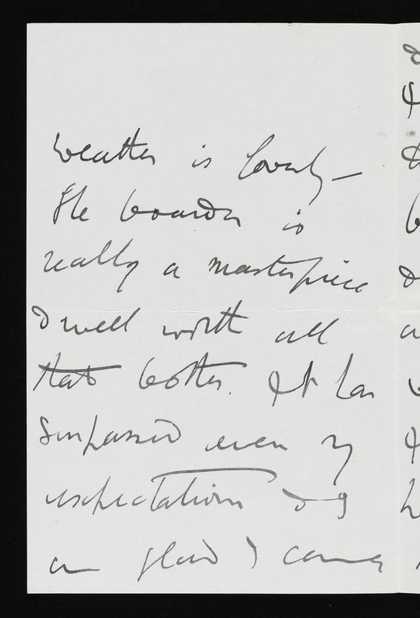 weather is lovely —
The boarder is
really a masterpiece
& well worth all
that bother. It has
surpassed even my
expectations & I
am glad I came